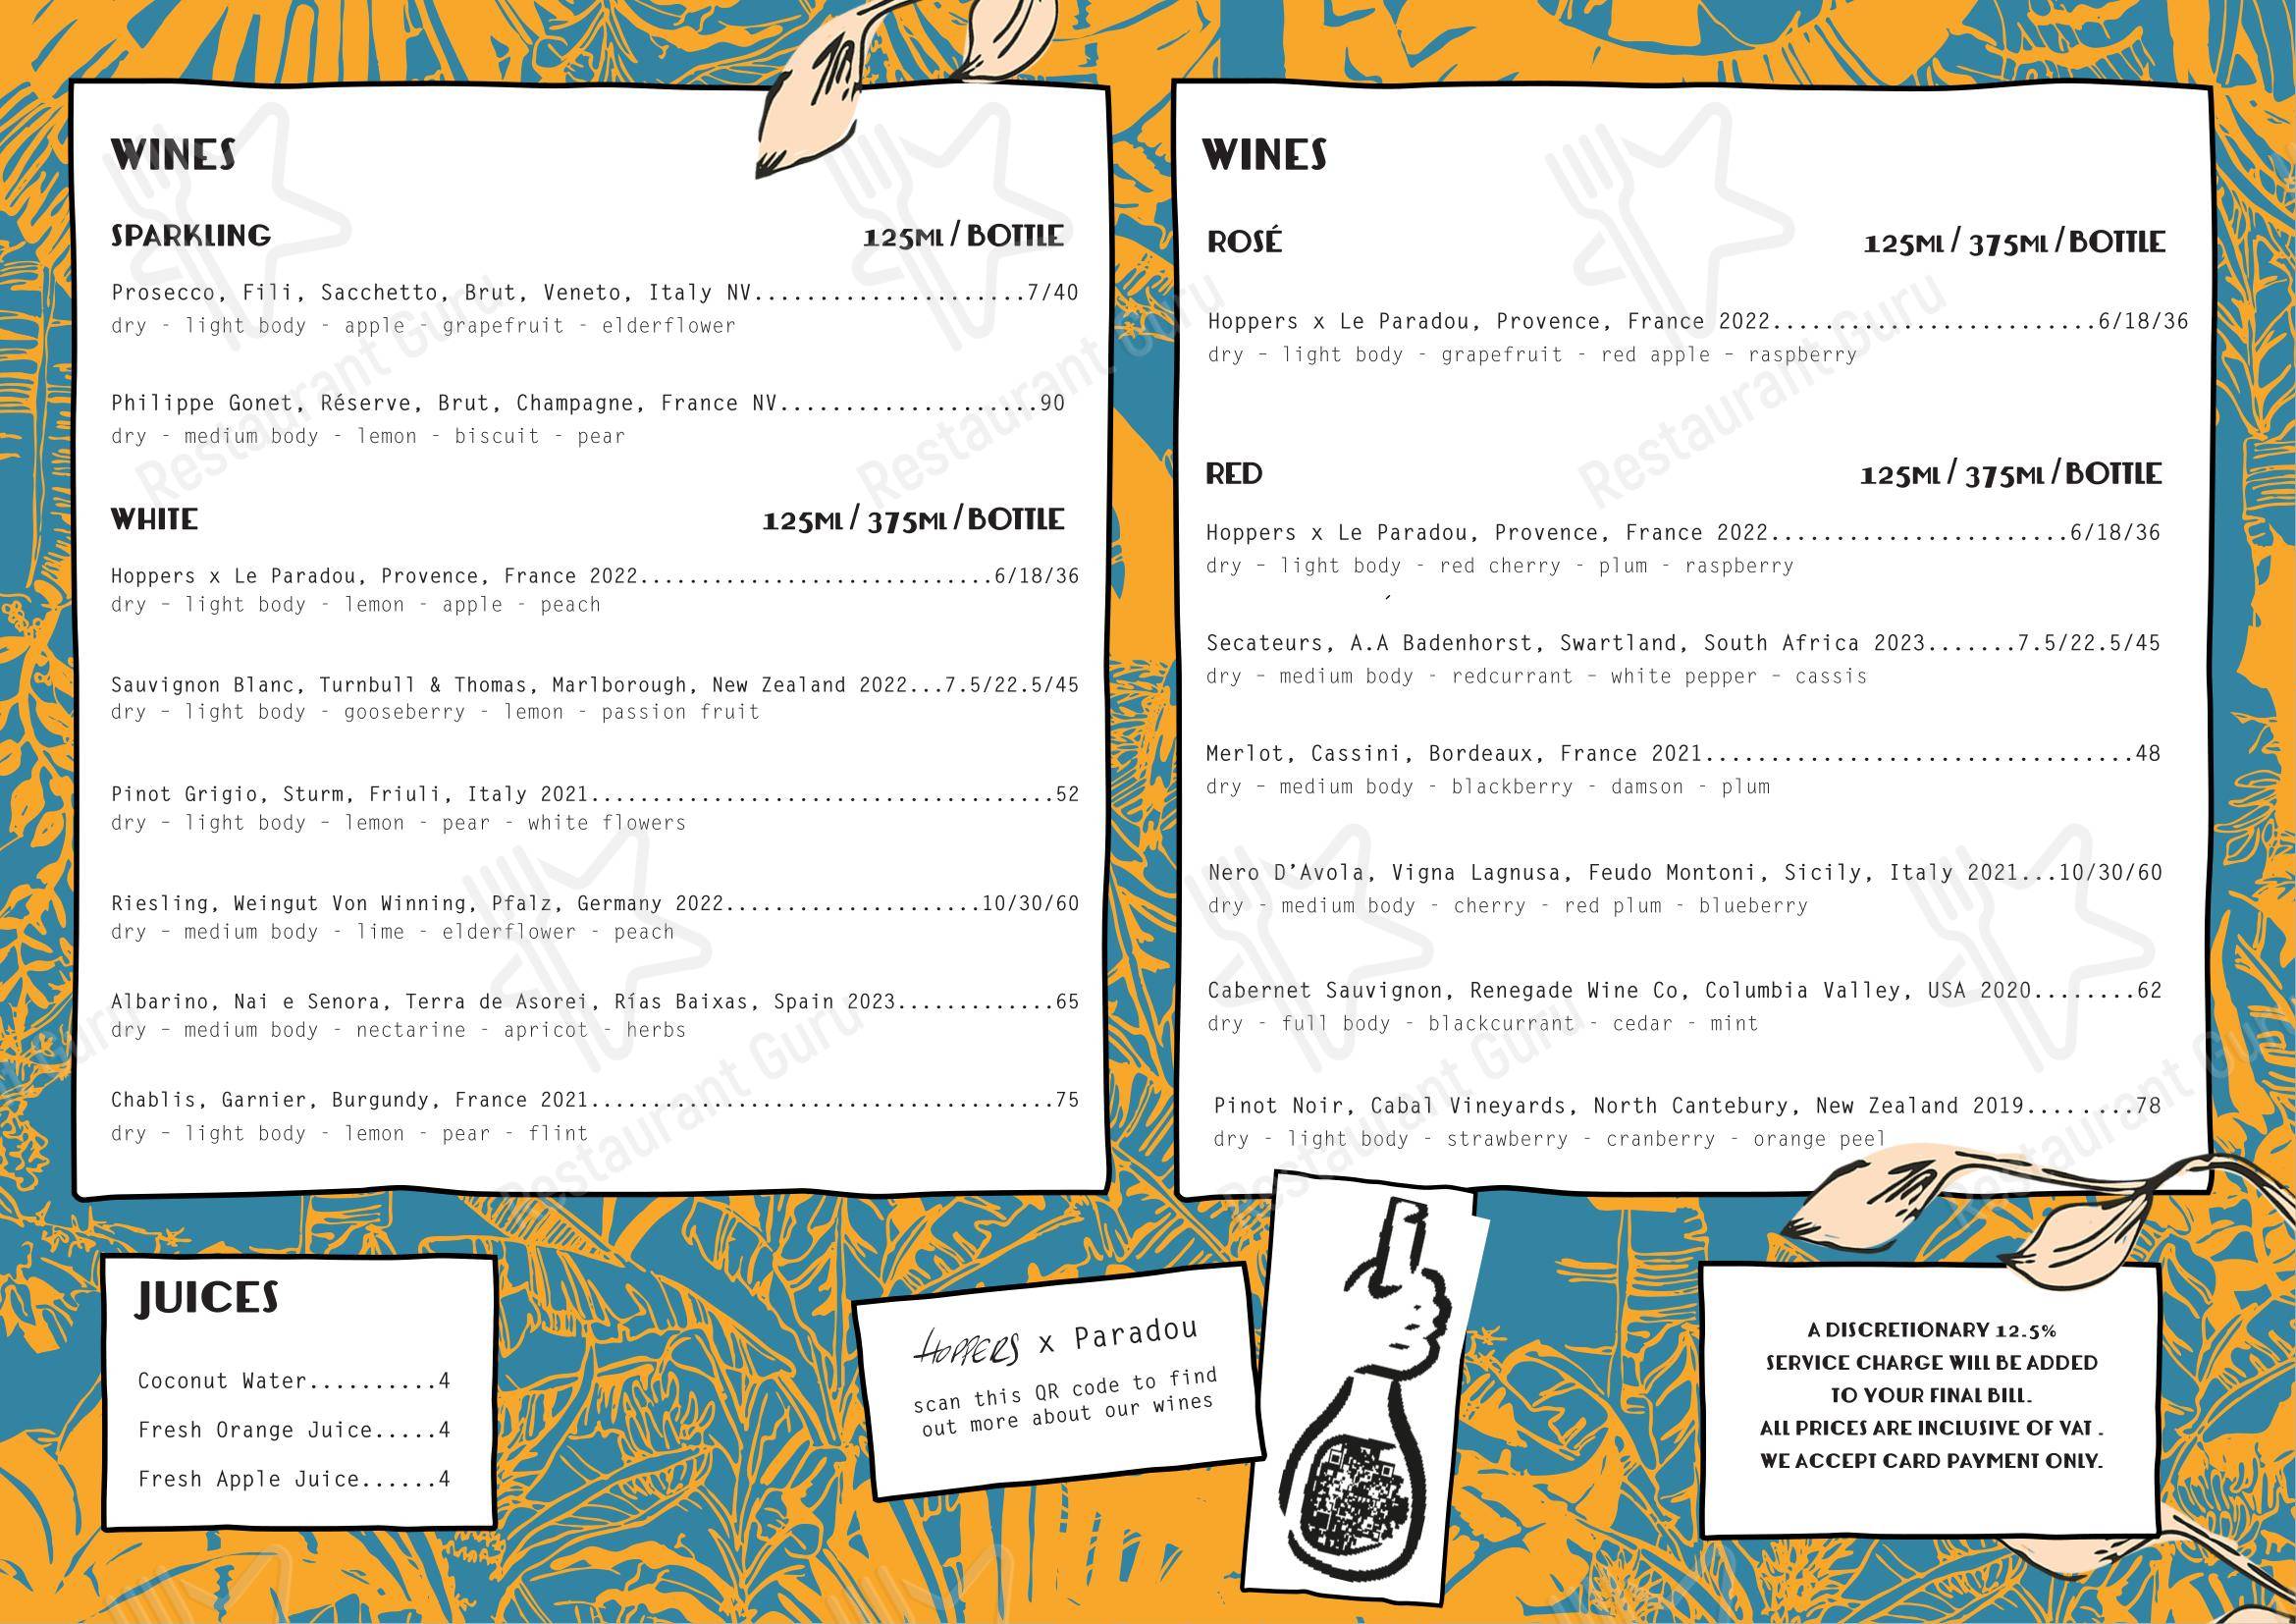 WINES
SPARKLING 125ML / BOTTLE
Prosecco, Fili, Sacchetto, Brut, Veneto, Italy NV.....................7/40
dry - light body - apple - grapefruit - elderflower
Philippe Gonet, Réserve, Brut, Champagne, France NV....................90
dry - medium body - lemon - biscuit - pear
WHITE 125ML / 375ML / BOTTLE
Hoppers x Le Paradou, Provence, France 2022.............................6/18/36
dry - light body - lemon - apple - peach
Sauvignon Blanc, Turnbull & Thomas, Marlborough, New Zealand 2022...7.5/22.5/45
dry - light body - gooseberry - lemon - passion fruit
Pinot Grigio, Sturm, Friuli, Italy 2021......................................52
dry - light body - lemon - pear - white flowers
Riesling, Weingut Von Winning, Pfalz, Germany 2022.....................10/30/60
dry - medium body - lime - elderflower - peach
Albarino, Nai e Senora, Terra de Asorei, Rías Baixas, Spain 2023.............65
dry - medium body - nectarine - apricot - herbs
Chablis, Garnier, Burgundy, France 2021......................................75
dry - light body - lemon - pear - flint
WINES
ROSÉ 125ML / 375ML / BOTTLE
Hoppers x Le Paradou, Provence, France 2022.........................6/18/36
dry - light body - grapefruit - red apple - raspberry
RED 125ML / 375ML / BOTTLE
Hoppers x Le Paradou, Provence, France 2022.......................6/18/36
dry - light body - red cherry - plum - raspberry
Secateurs, A.A Badenhorst, Swartland, South Africa 2023.......7.5/22.5/45
dry - medium body - redcurrant - white pepper - cassis
Merlot, Cassini, Bordeaux, France 2021.................................48
dry - medium body - blackberry - damson - plum
Nero D’Avola, Vigna Lagnusa, Feudo Montoni, Sicily, Italy 2021...10/30/60
dry - medium body - cherry - red plum - blueberry
Cabernet Sauvignon, Renegade Wine Co, Columbia Valley, USA 2020........62
dry - full body - blackcurrant - cedar - mint
Pinot Noir, Cabal Vineyards, North Cantebury, New Zealand 2019........78
dry - light body - strawberry - cranberry - orange peel
JUICES
Coconut Water..........4
Fresh Orange Juice.....4
Fresh Apple Juice......4
HOPPERS x Paradou
scan this QR code to find
out more about our wines
A DISCRETIONARY 12.5%
SERVICE CHARGE WILL BE ADDED
TO YOUR FINAL BILL.
ALL PRICES ARE INCLUSIVE OF VAT .
WE ACCEPT CARD PAYMENT ONLY.
Restaurant Guru
Restaurant Guru
Restaurant Guru
Restaurant Guru
Restaurant Guru
Restaurant Guru